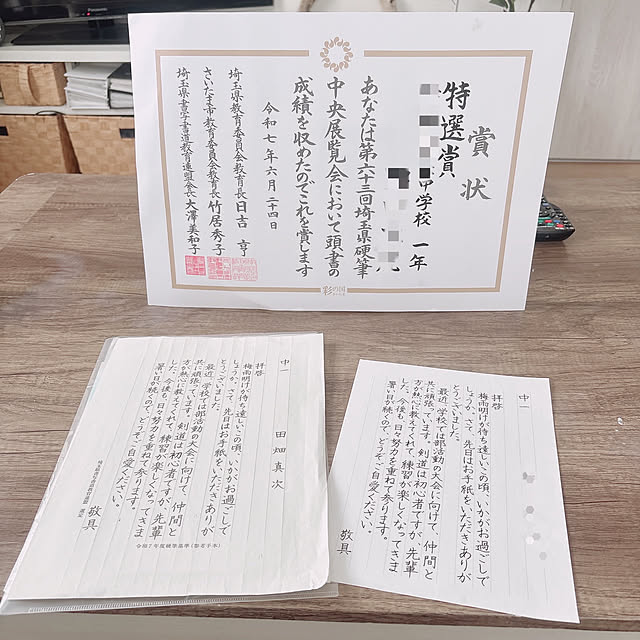 Panasonic
賞状
特選賞
中学校 一年
あなたは第六十三回埼玉県硬筆
中央展覧会において頭書の
成績を収めたのでこれを賞します
令和七年六月二十四日
埼玉県教育委員会教育長 日吉 亨
さいたま市教育委員会教育長 竹居秀子
埼玉県書写書道教育連盟会長 大澤美和子
彩の国
中一
田畑真次
拝啓
梅雨明けが待ち遠しいこの頃、いかがお過ごしで
しょうか。さて、先日はお手紙をいただきありが
とうございました。
最近、学校では部活動の大会に向けて、仲間と
共に頑張っています。剣道は初心者ですが、先輩
方が熱心に教えてくれて、練習が楽しくなってきま
した。今後も、日々努力を重ねて参ります。
暑い日が続くので、どうぞご自愛ください。
敬具
令和7年度硬筆基準(参考手本)
中一
拝啓
梅雨明けが待ち遠しいこの頃、いかがお過ごしで
しょうか。さて、先日はお手紙をいただきありが
とうございました。
最近、学校では部活動の大会に向けて、仲間と
共に頑張っています。剣道は初心者ですが、先輩
方が熱心に教えてくれて、練習が楽しくなってきま
した。今後も、日々努力を重ねて参ります。
暑い日が続くので、どうぞご自愛ください。
敬具